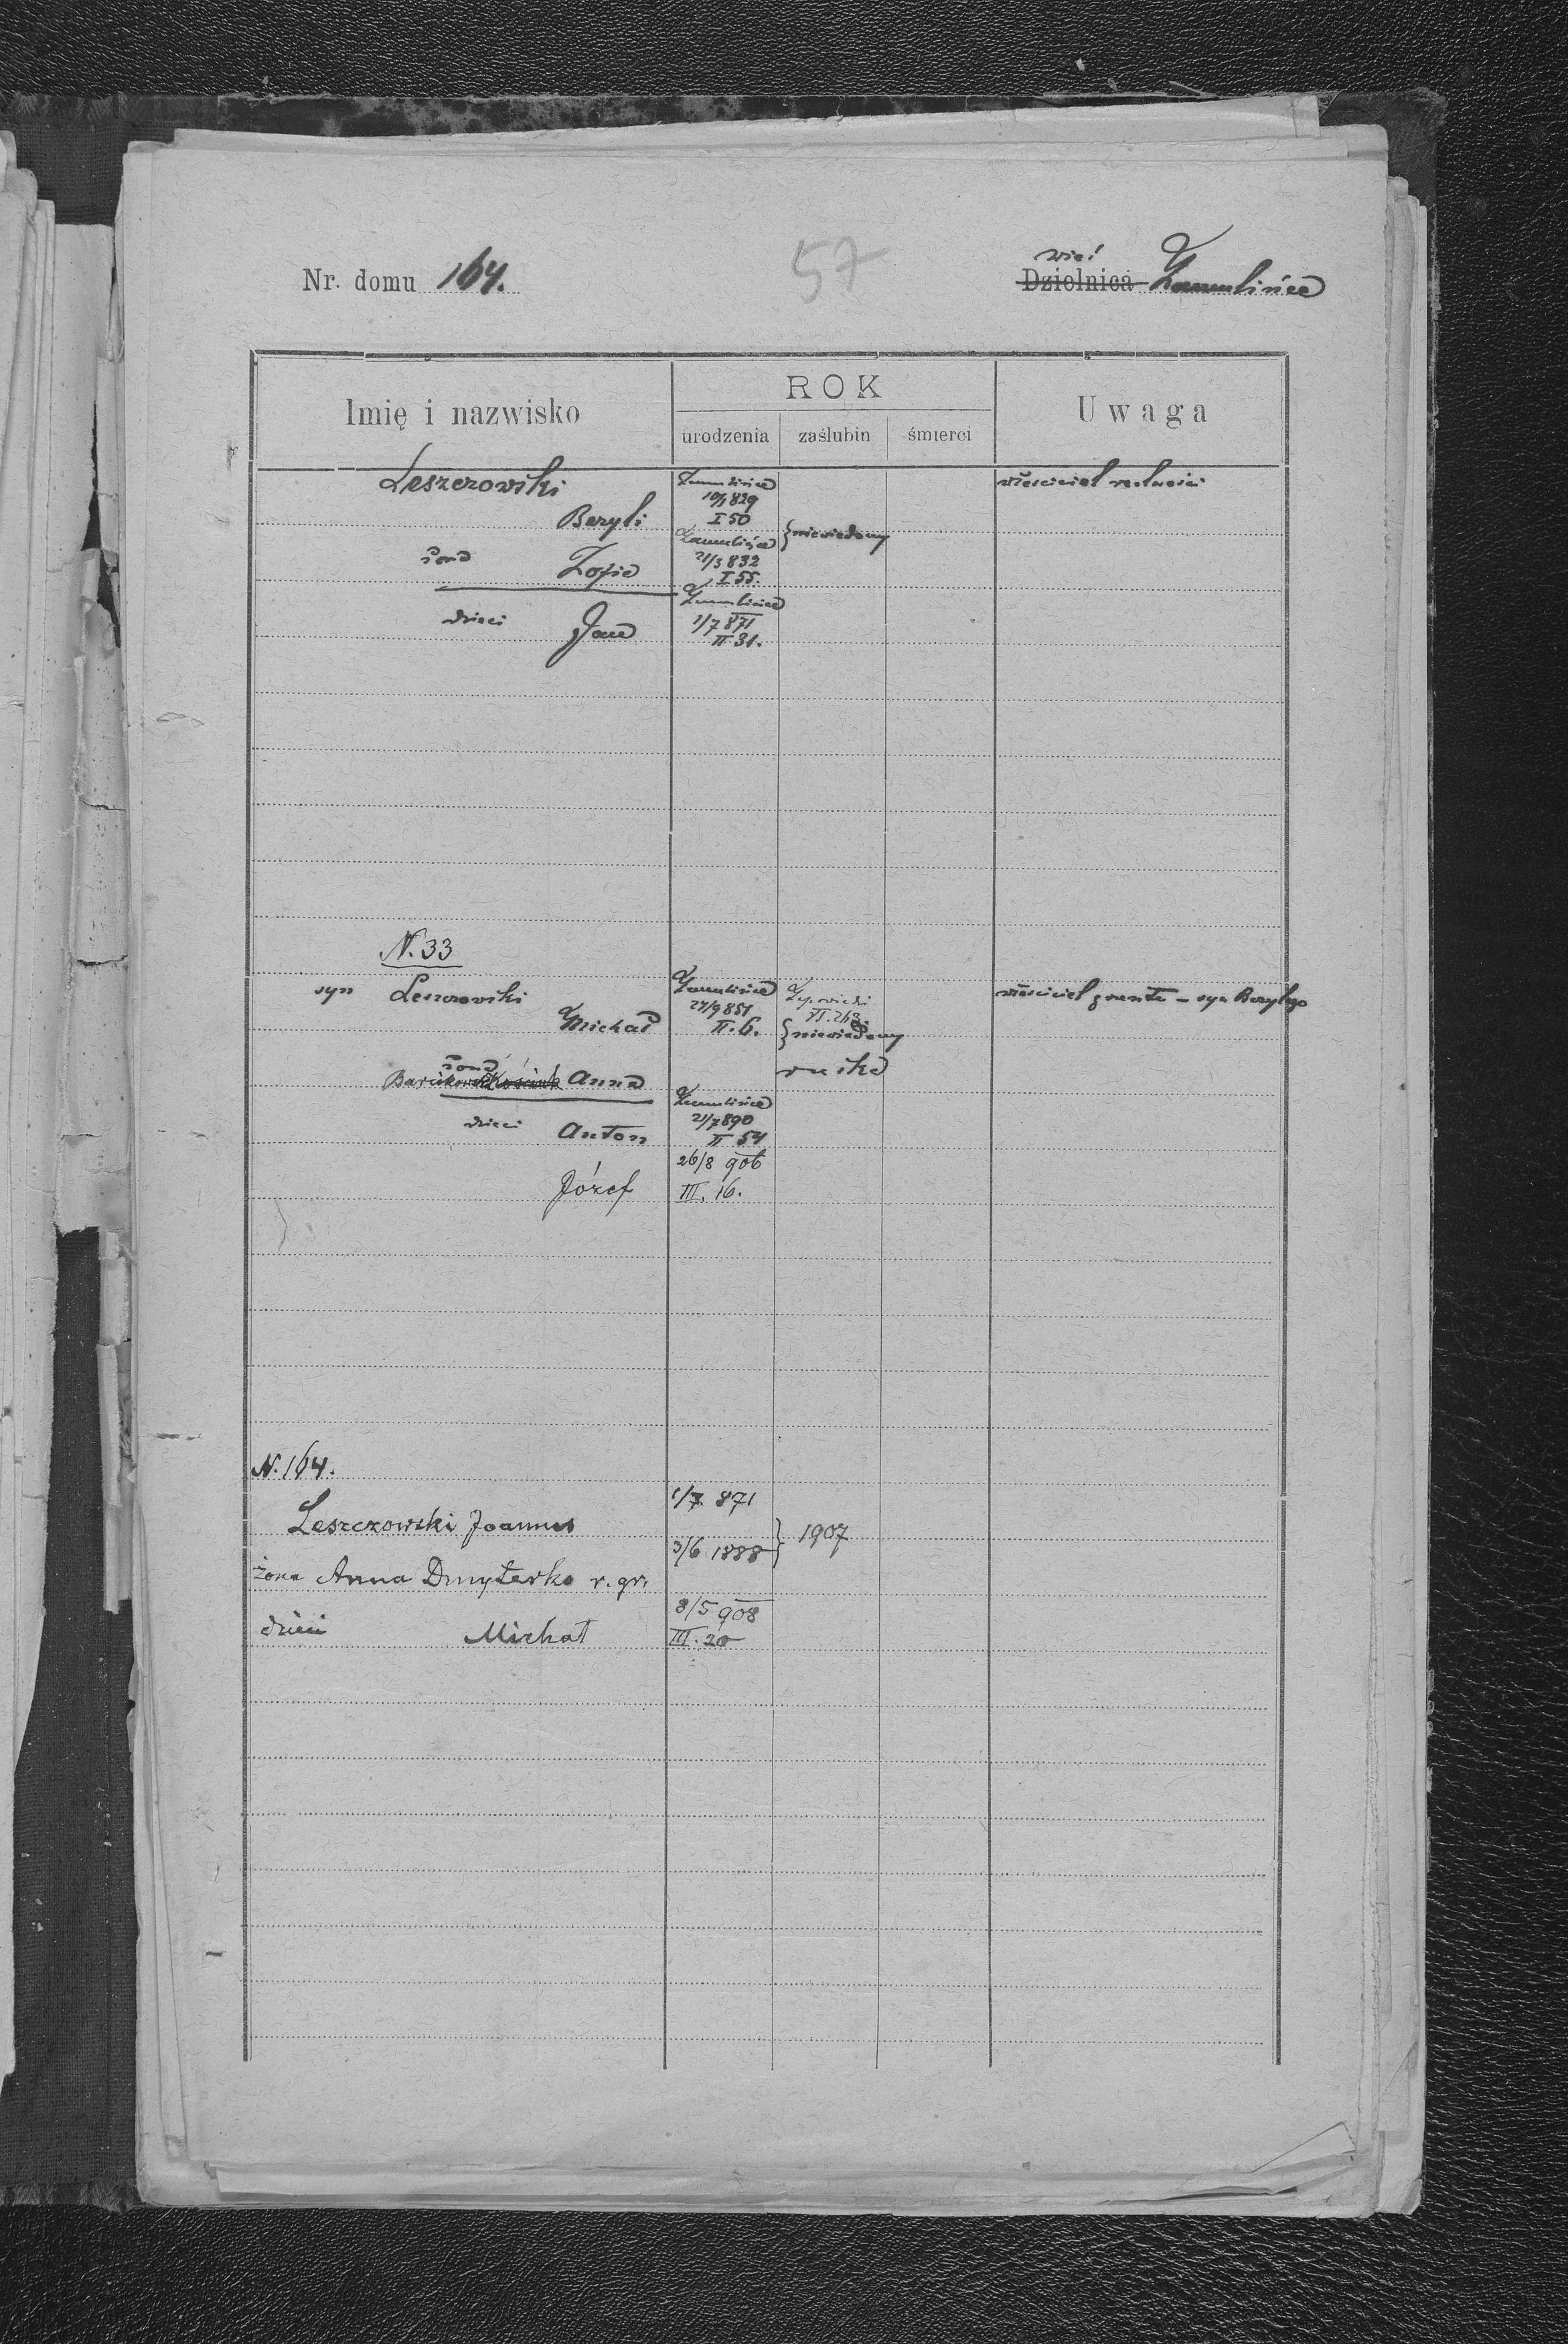 Nr. domu 164.
57
wieś
Dzielnica Zamulińce
Imię i nazwisko
ROK
urodzenia zaślubin śmierci
Uwaga
Leszczowski Zamulińce właściciel realności
10/1 829
Bazyli I 50
Zamulińce } niewiadomy
żona Zofia 21/3 832
I 55.
Zamulińce
dzieci Jan 1/7 871
II 31.
N. 33
syn Leszczowski Zamulińce właściciel gruntu – syn Bazylego
Michał 24/9 851
II. 6. } niewiadomy
żona
Anna ruska
Zamulińce
dzieci Anton 21/7 890
II 54
26/8 906
Józef III. 16.
N. 164.
1/7 871
Leszczowski Joannes
3/6 1888 } 1907
żona Anna Dmyterko r. gr.
8/5 908
dzieci Michał III. 20